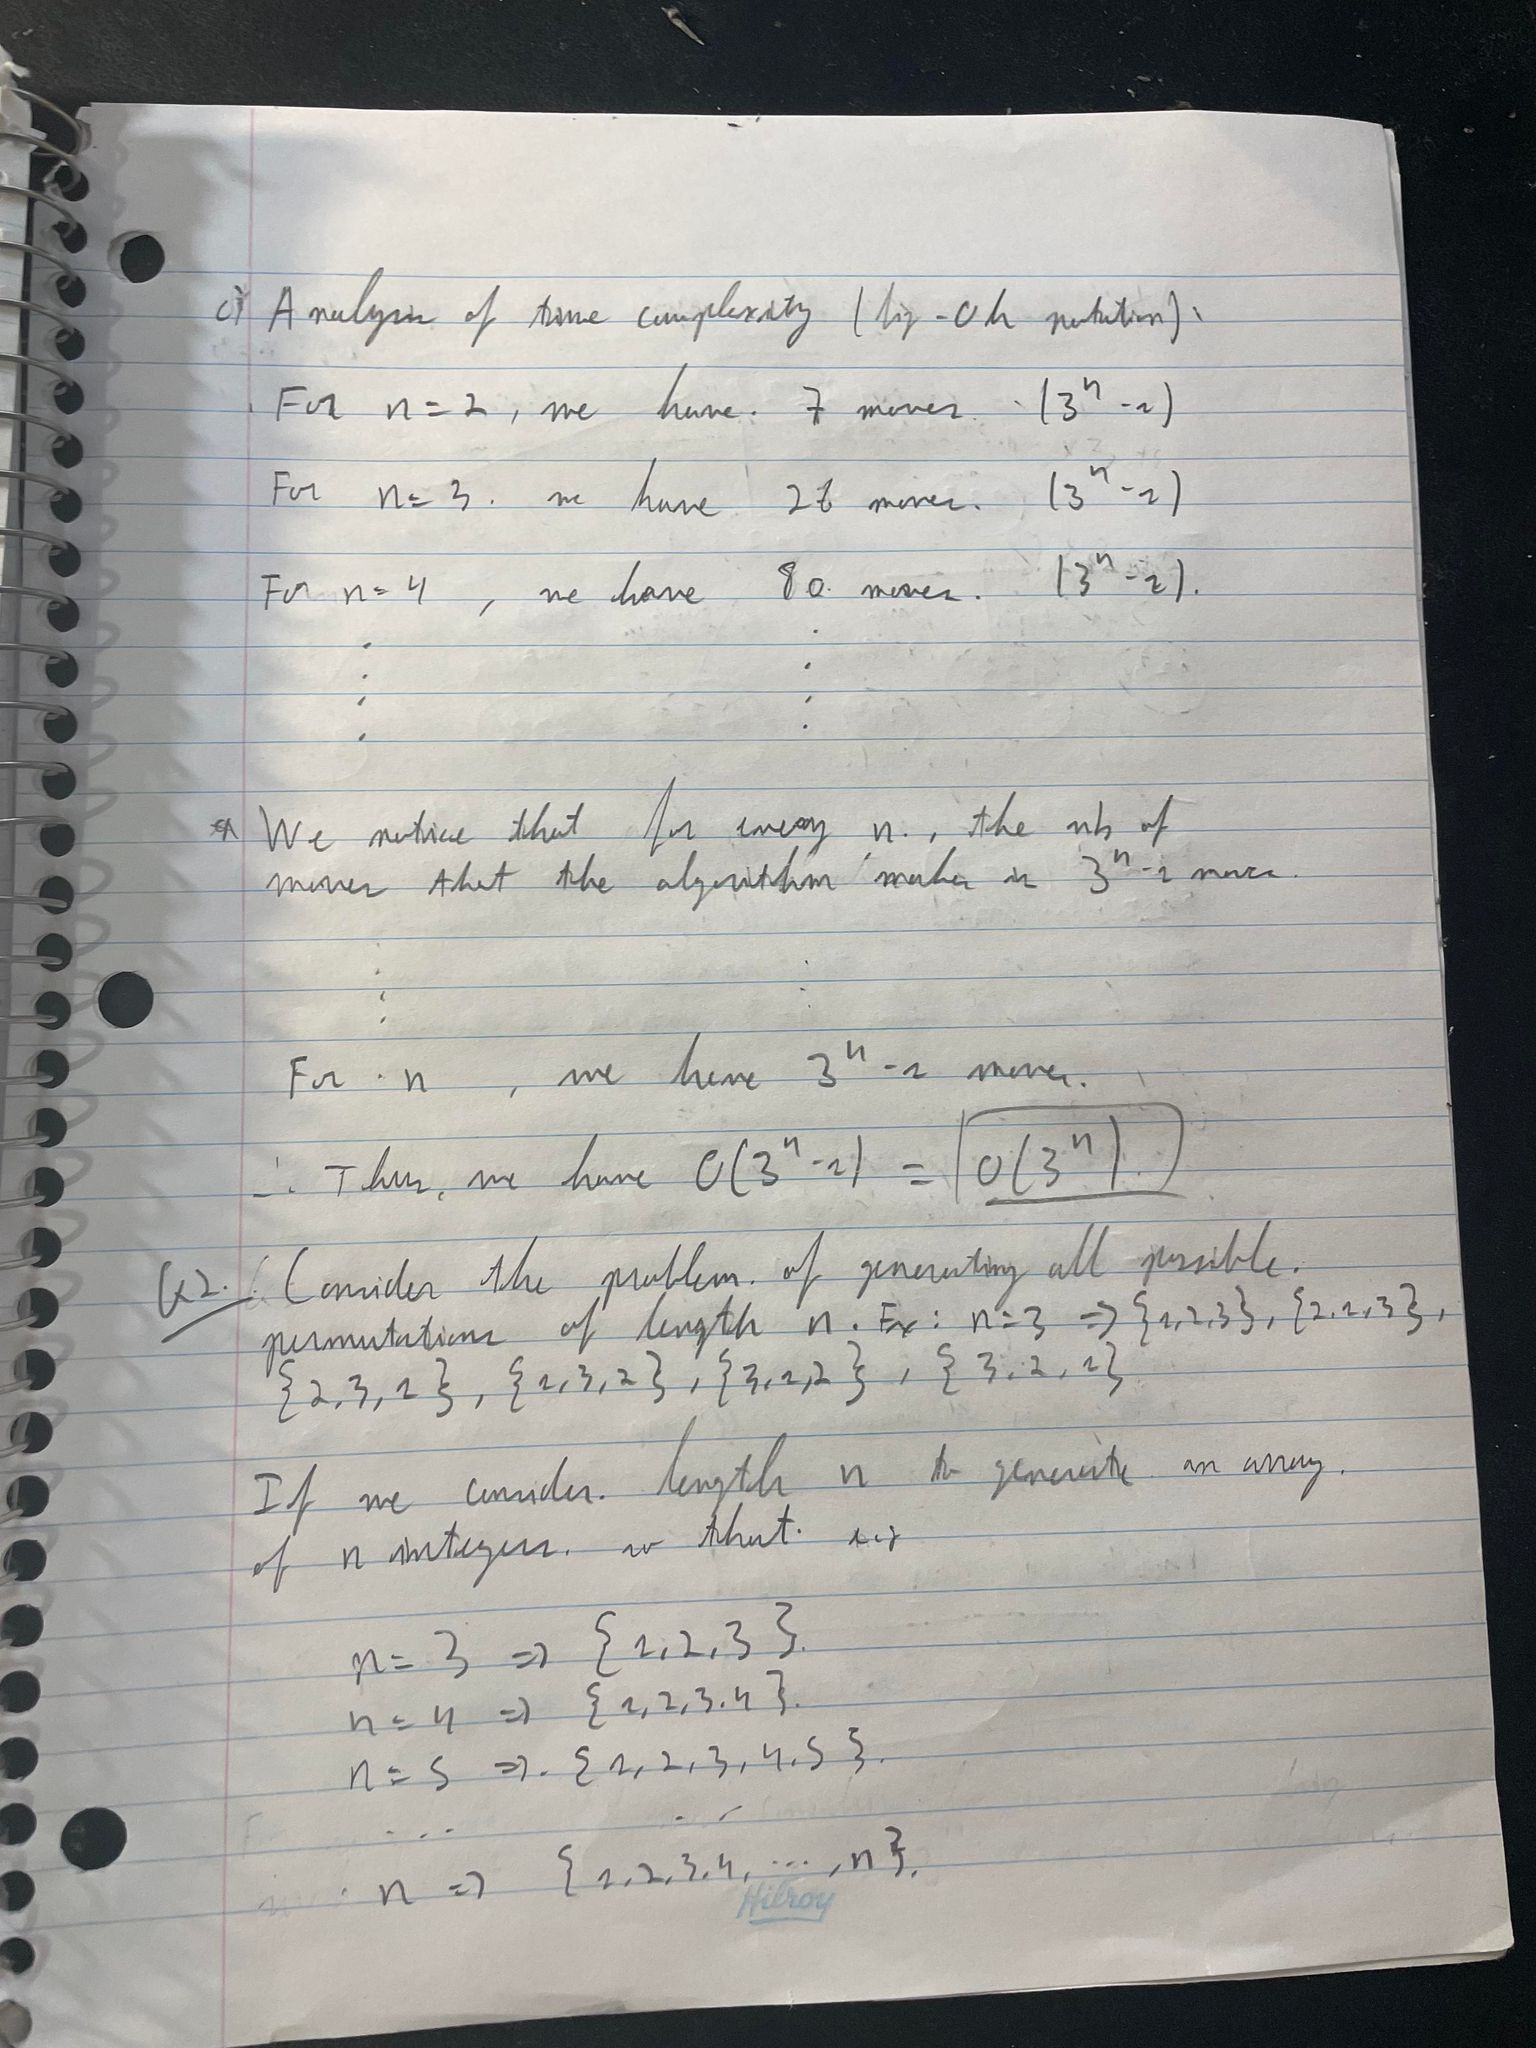 c) Analysis of time complexity (big-Oh notation):
For n=2, we have 7 moves. (3ⁿ-1)
For n=3. we have 26 moves. (3ⁿ-1)
For n=4, we have 80 moves. (3ⁿ-1).
We notice that for every n., the nb of
moves that the algorithm makes is 3ⁿ-1 moves.
For n, we have 3ⁿ-1 moves.
∴ Thus, we have O(3ⁿ-1) = O(3ⁿ).
Q2. Consider the problem of generating all possible.
permutations of length n. Ex: n=3 => {1,2,3}, {2,1,3},
{2,3,1}, {1,3,2}, {3,1,2}, {3,2,1}
If we consider length n to generate an array.
of n integers. so that
n=3 => {1,2,3}.
n=4 => {1,2,3,4}.
n=5 => {1,2,3,4,5}.
... ...
n => {1,2,3,4,...,n}.
Hilroy